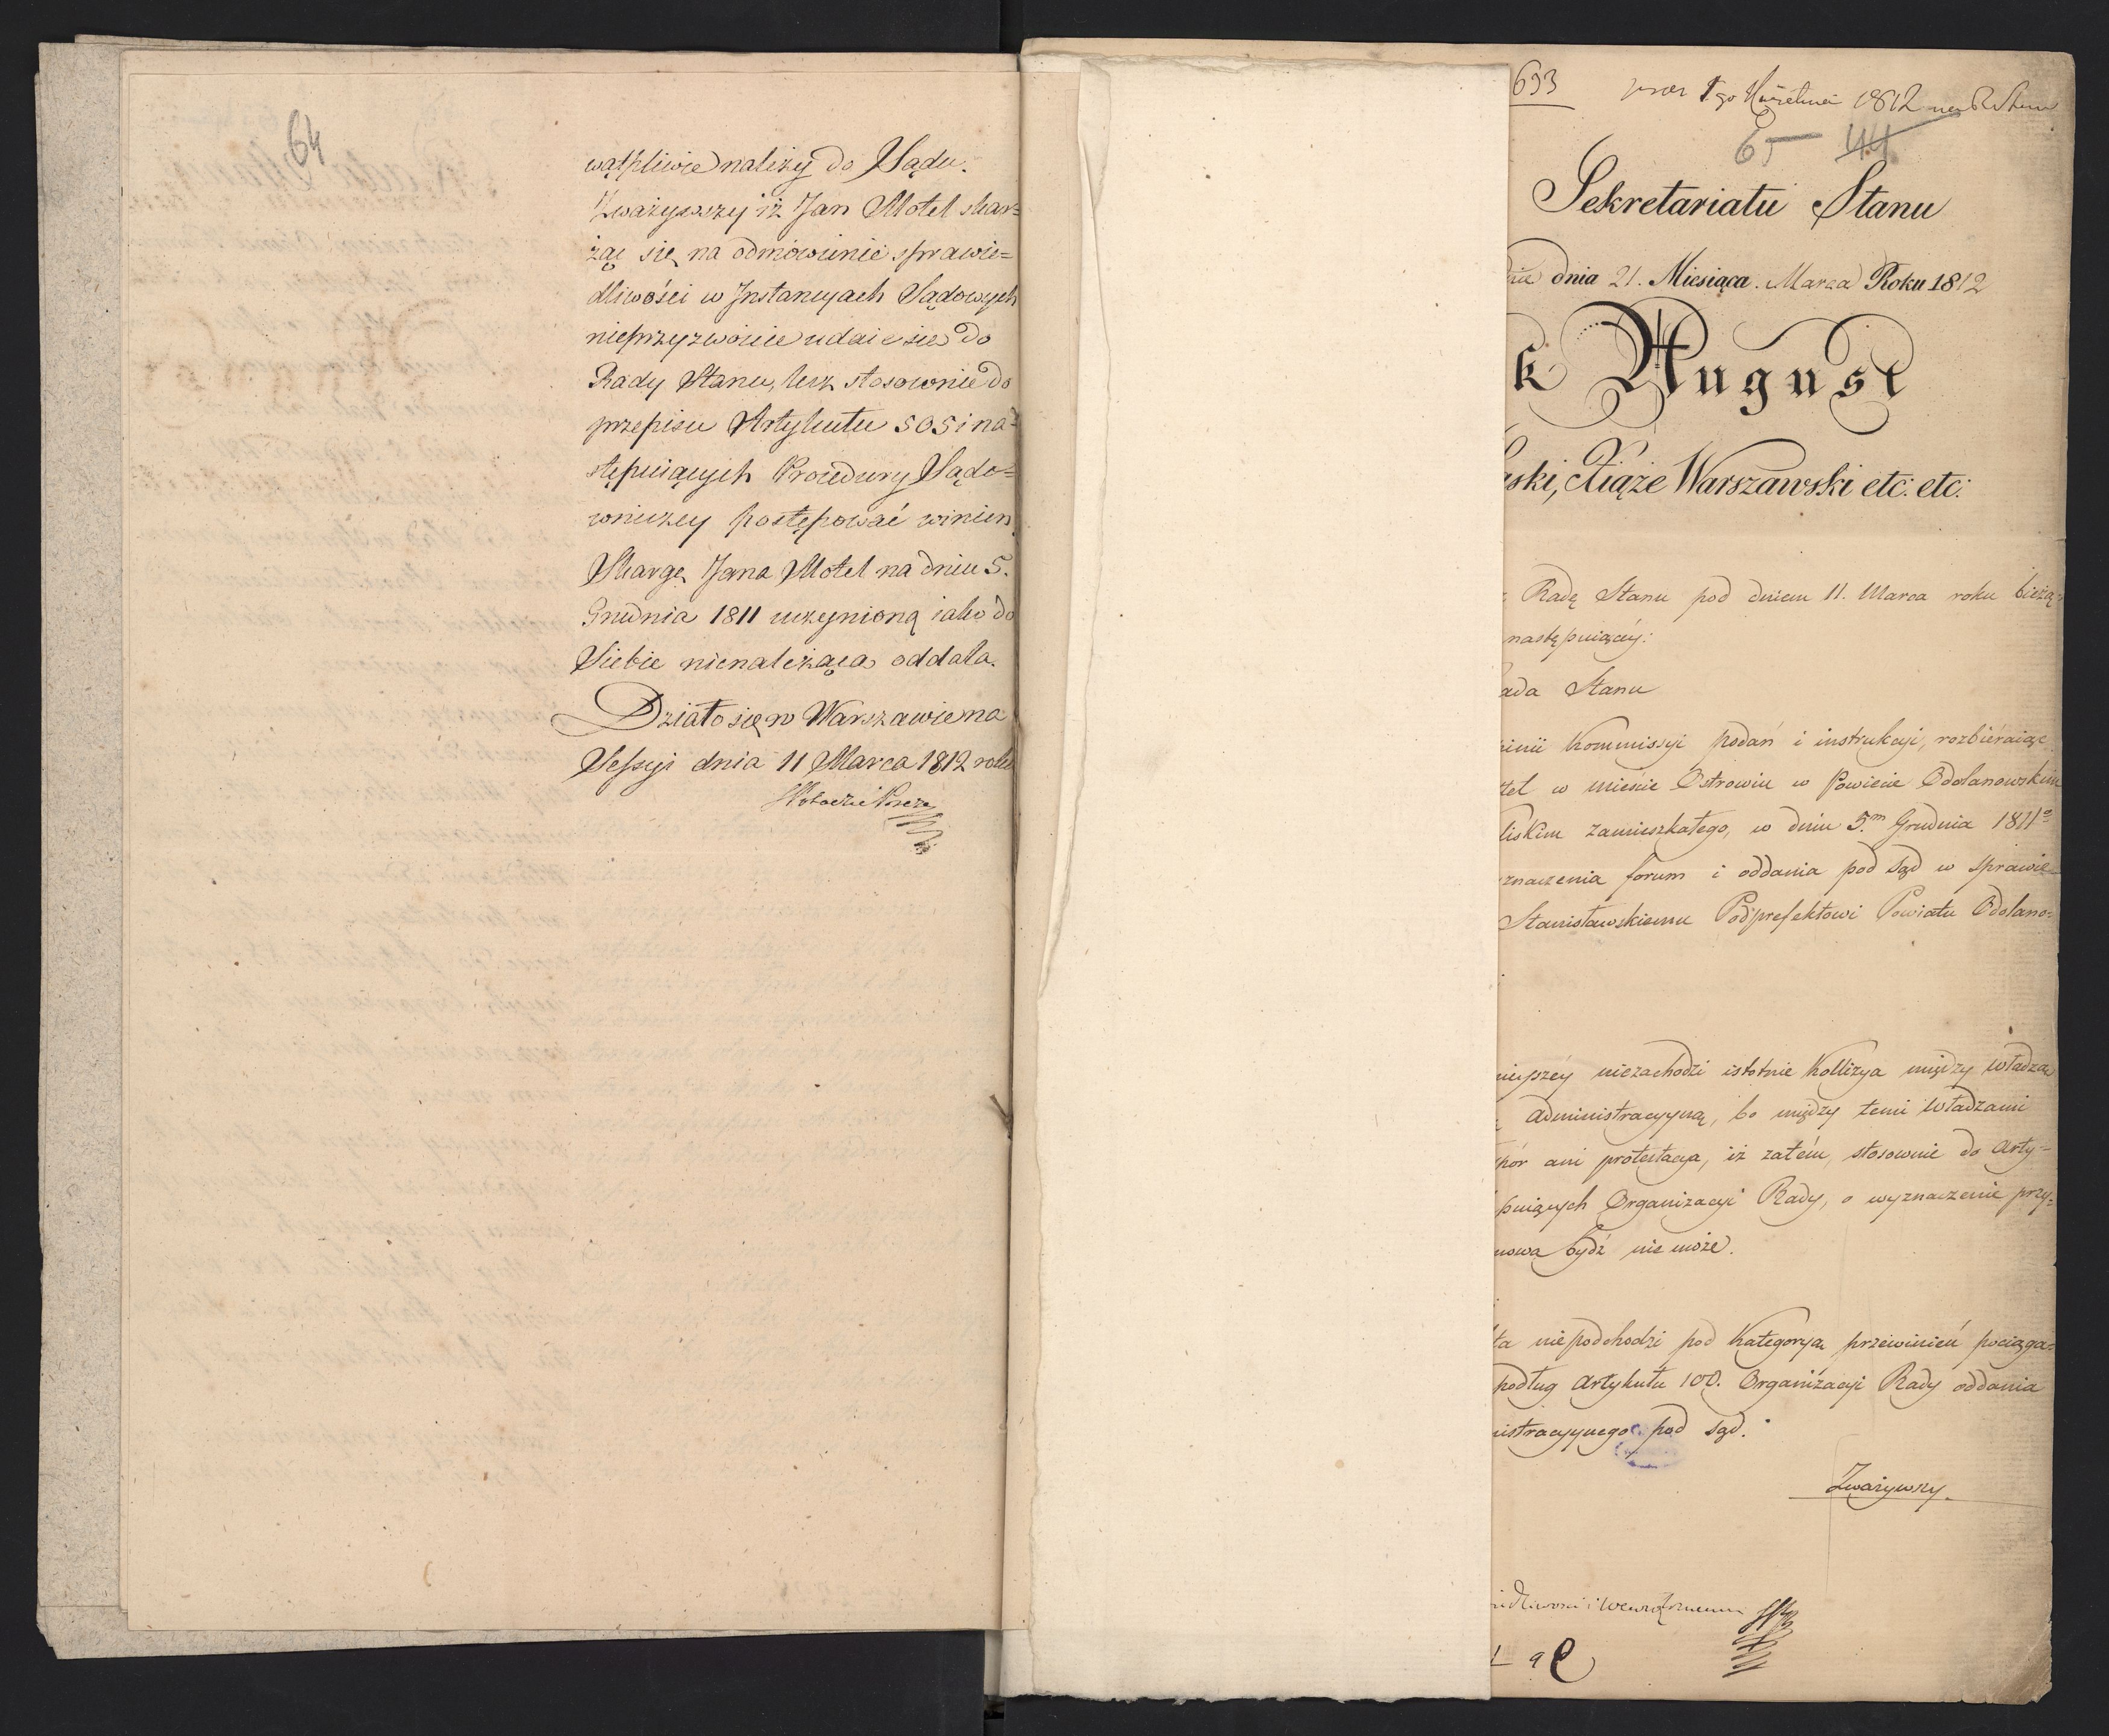 64
wątpliwie należy do Sądu.
Zważywszy iż Jan Motel skar=
żąc się na odmówienie sprawie=
dliwości w Instancyach Sądowych
nieprzyzwoicie udaie się do
Rady Stanu, lecz stosownie do
przepisu Artykułu 505 i na=
stępuiących Procedury Sądo=
wniczey postępować winien
Skargę Jana Motel na dniu 5.
Grudnia 1811 uczynioną iako do
Siebie nienależącą oddala.
Działo się w Warszawie na
Sessyi dnia 11 Marca 1812 roku
693
1go Kwietnia 1812
65 44
Sekretariatu Stanu
dnia 21. Miesiąca Marca Roku 1812
k August
ski, Xiąże Warszawski etc: etc:
Radę Stanu pod dniem 11. Marca roku bieżą=
następuiącey:
ada Stanu
inii Kommissyi podań i instrukcyi, rozbieraiąc
tel w mieście Ostrowiu w Powiecie Odolanowskim
liskim zamieszkałego, w dniu 5.m Grudnia 1811
znaczenia forum i oddania pod sąd w sprawie
Stanisławskiemu Podprefektowi Powiatu Odolano=
nieyszey niezachodzi istotnie Kollizya między władzą
administracyyną, bo między temi Władzami
pór ani protestacya, iż zatém, stosownie do Arty=
puiących Organizacyi Rady, o wyznaczenie przy=
mowa bydź nie może.
ta niepodchodzi pod Kategoryą przewinień pociąga=
podług Artykułu 100. Organizacyi Rady oddania
istracyynego pod sąd.
Zważywszy